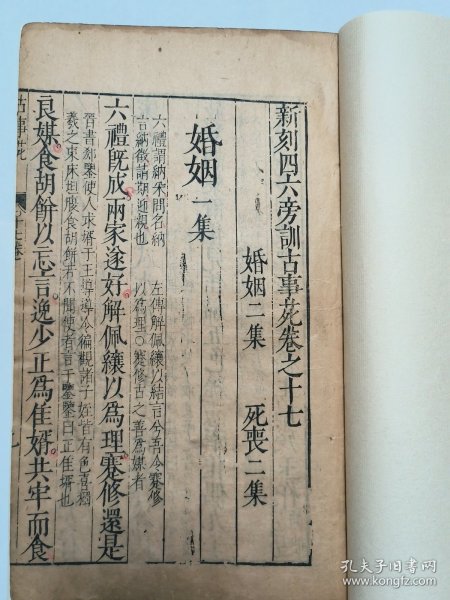 新刻四六旁訓古事苑卷之十七
婚姻二集 死喪二集
婚姻一集
六禮謂納采問名納
吉納徵請期迎親也
左傳解佩纕以結言兮吾令蹇修
以為理○蹇修古之善為媒者
六禮既成兩家遂好解佩纕以為理蹇修還是
晉書郗鑒使人求婿于王導導令徧觀諸子姪皆有色喜獨
羲之東床坦腹食胡餅若不聞使者言于鑒鑒曰正佳婿也
良媒食胡餅以忘言逸少正為佳婿共牢而食
古事苑
孔夫子旧书网
www.kongfz.com